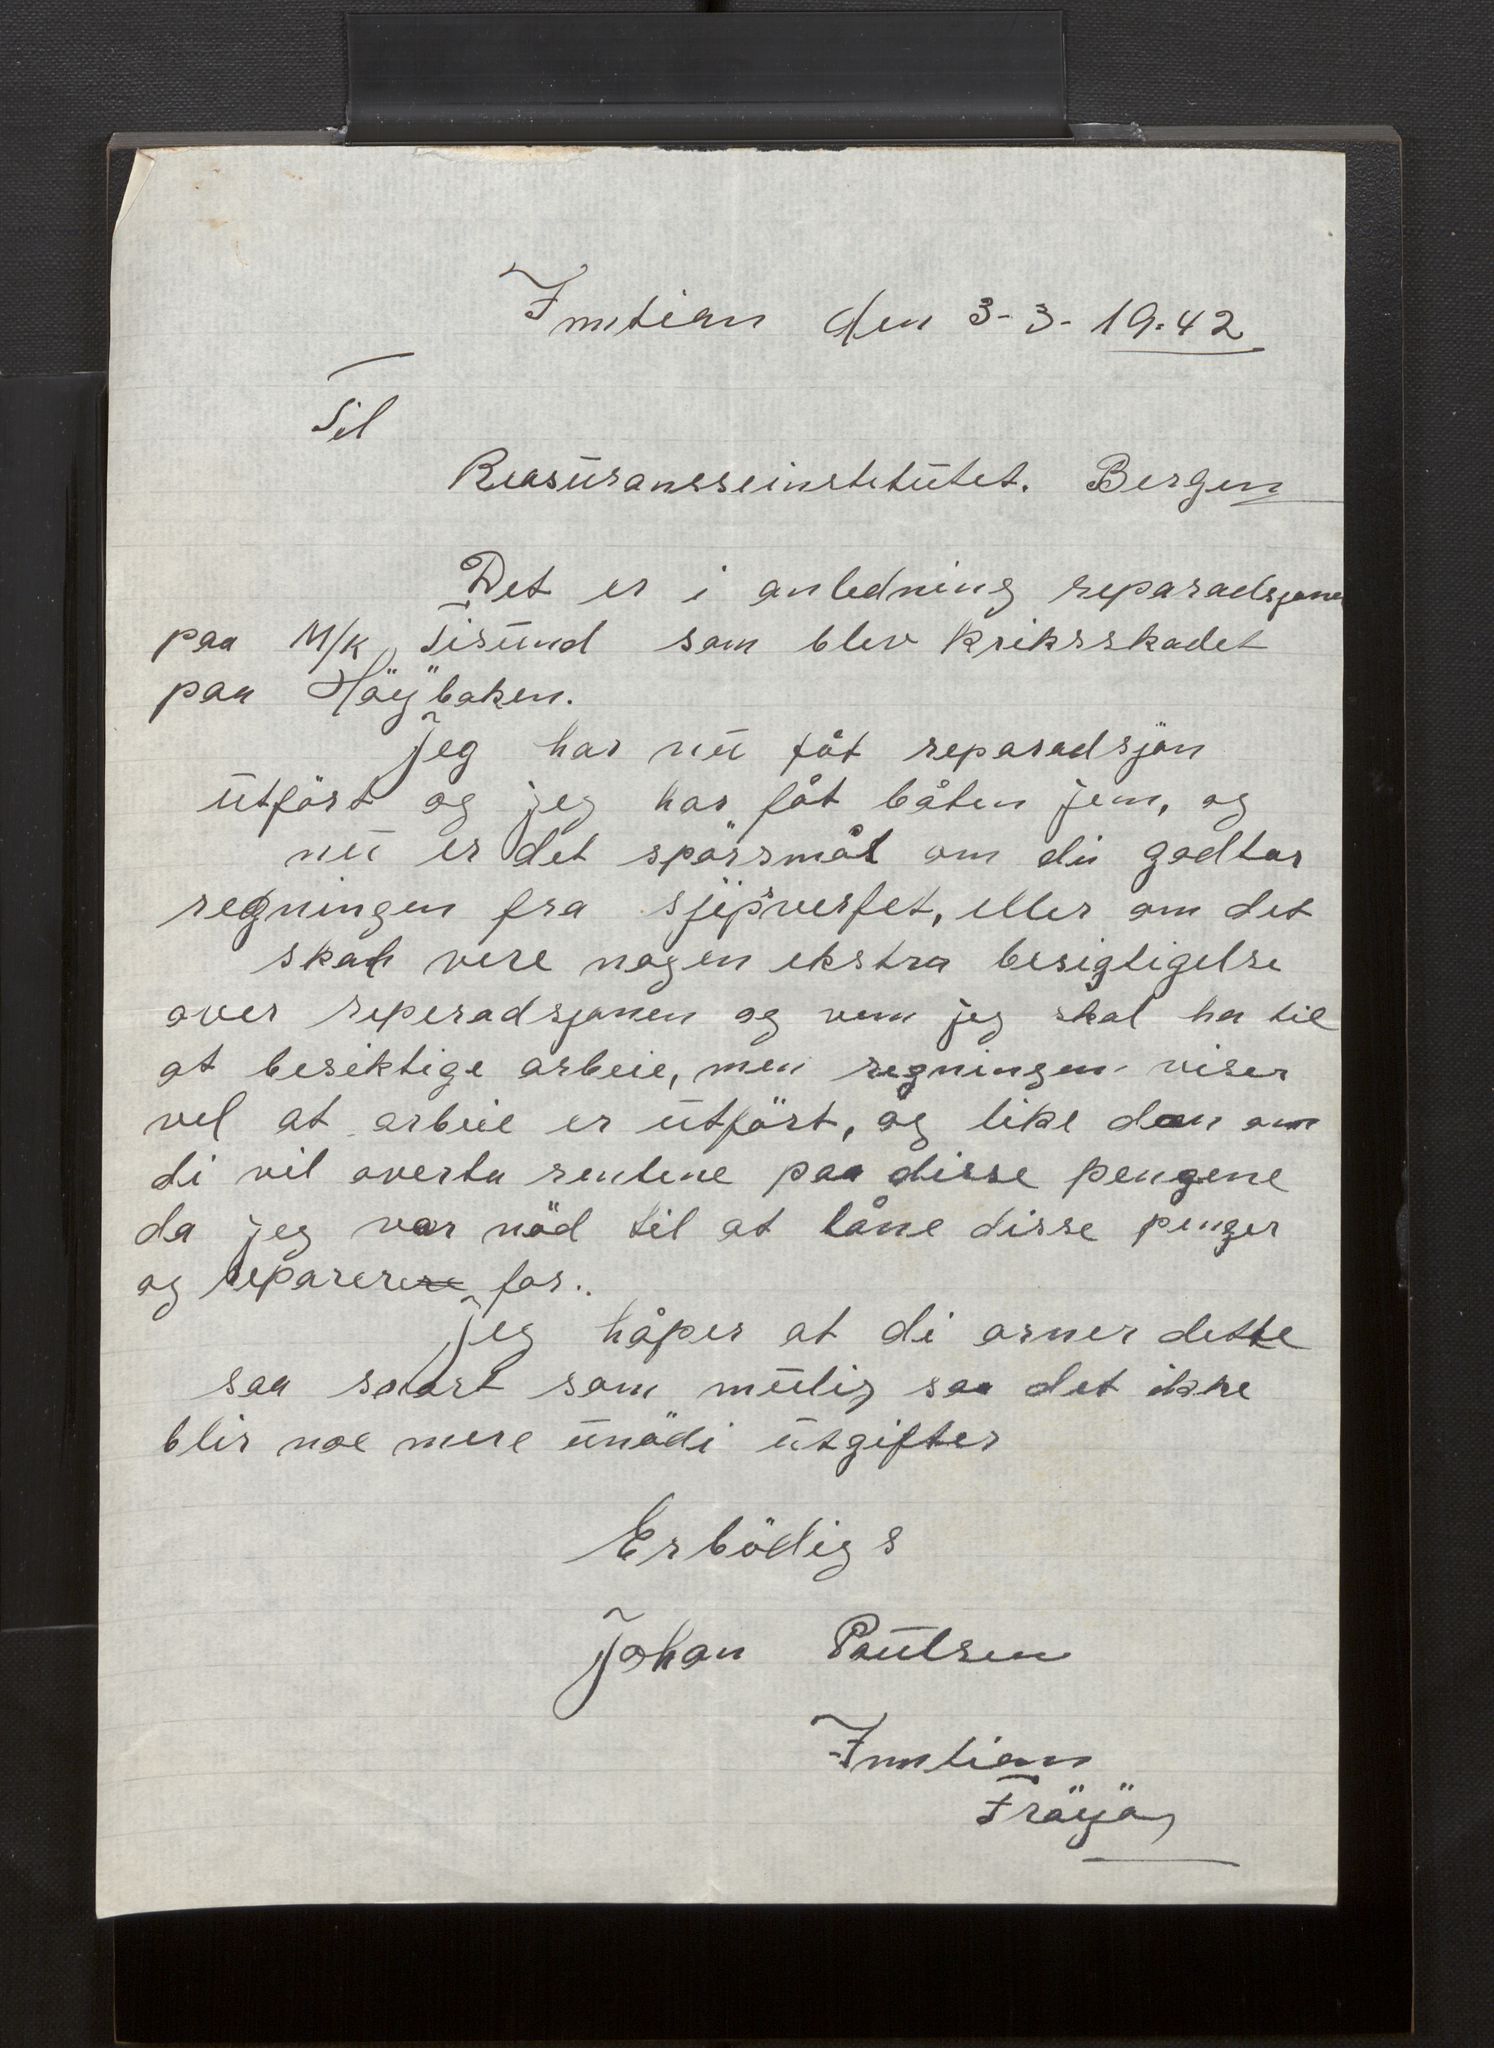 Inntian den 3-3-19.42
Til
Reasüransseinstetütet. Bergen
Det er i anledning reparadsjonen
paa M/K Tisünd som blev kriksskadet
paa Höÿbaken.
jeg har nü fåt reparadsjön
ütfört og jeg har fåt båten jem, og
nü er det spörsmål om di godtar
regningen fra sjipsverfet, eller om det
skal vere nogen ekstra besigtigelse
over reperadsjonen og vem jeg skal ha til
at besiktige arbeie, men regningen viser
vel at arbeie er ütfört, og like dan om
di vil overta rentene paa disse pengene
da jeg var nöd til at låne disse penger
og reparerere for..
jeg håper at di orner dette
saa snart som mülig saa det ikke
blir noe mere ünödi ütgifter
Erbödigs
Johan Paülsen
Inntian
Fröyö